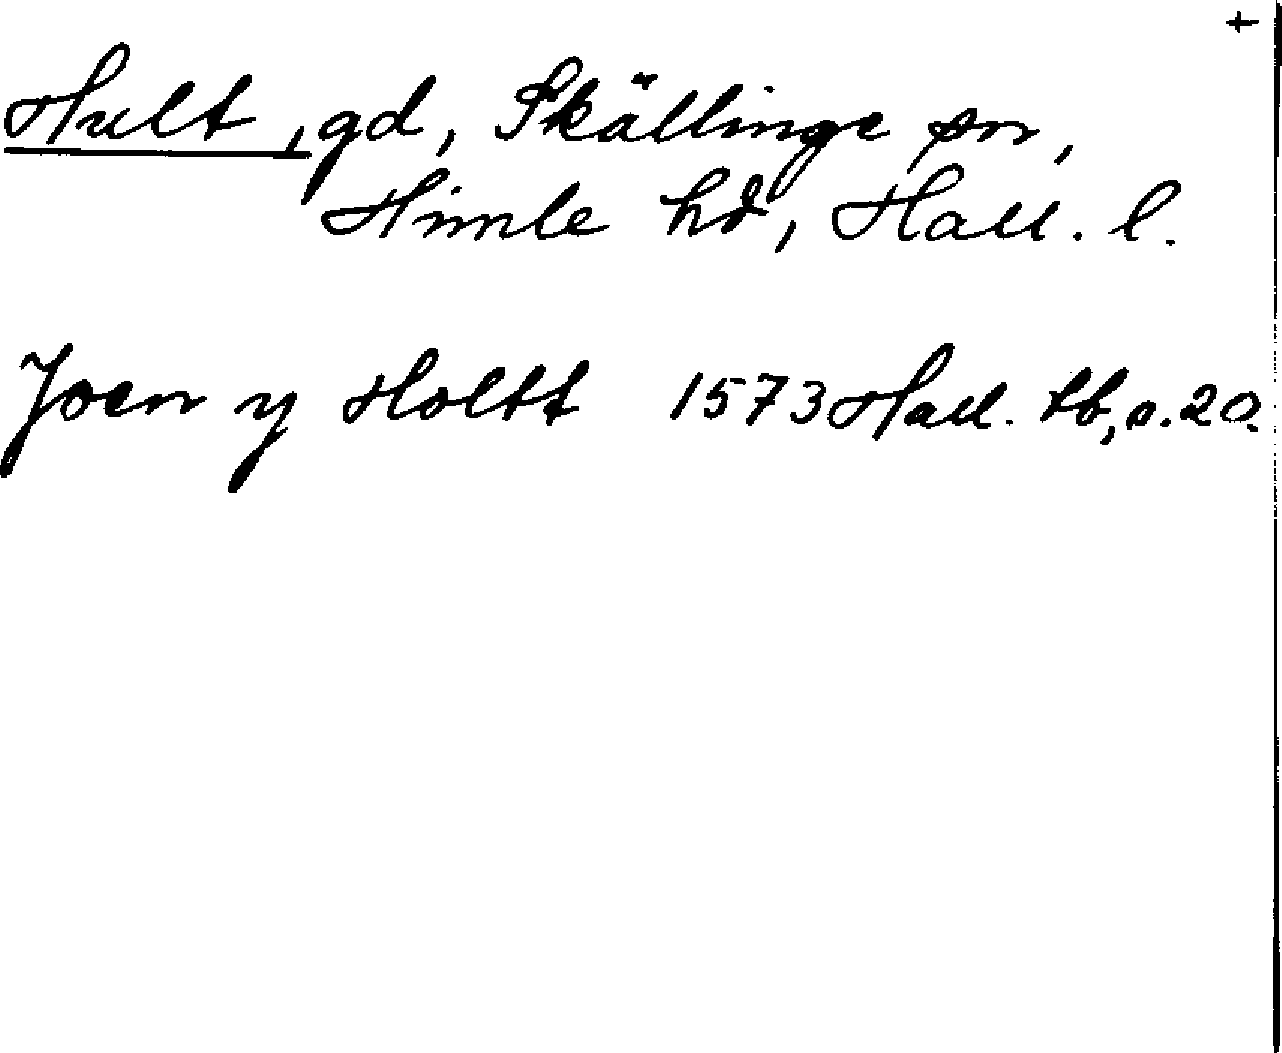 +
Hult, gd, Skällinge sn,
Himle hd, Hall. l.
Joen y Holtt 1573 Hall. tb, s. 20.